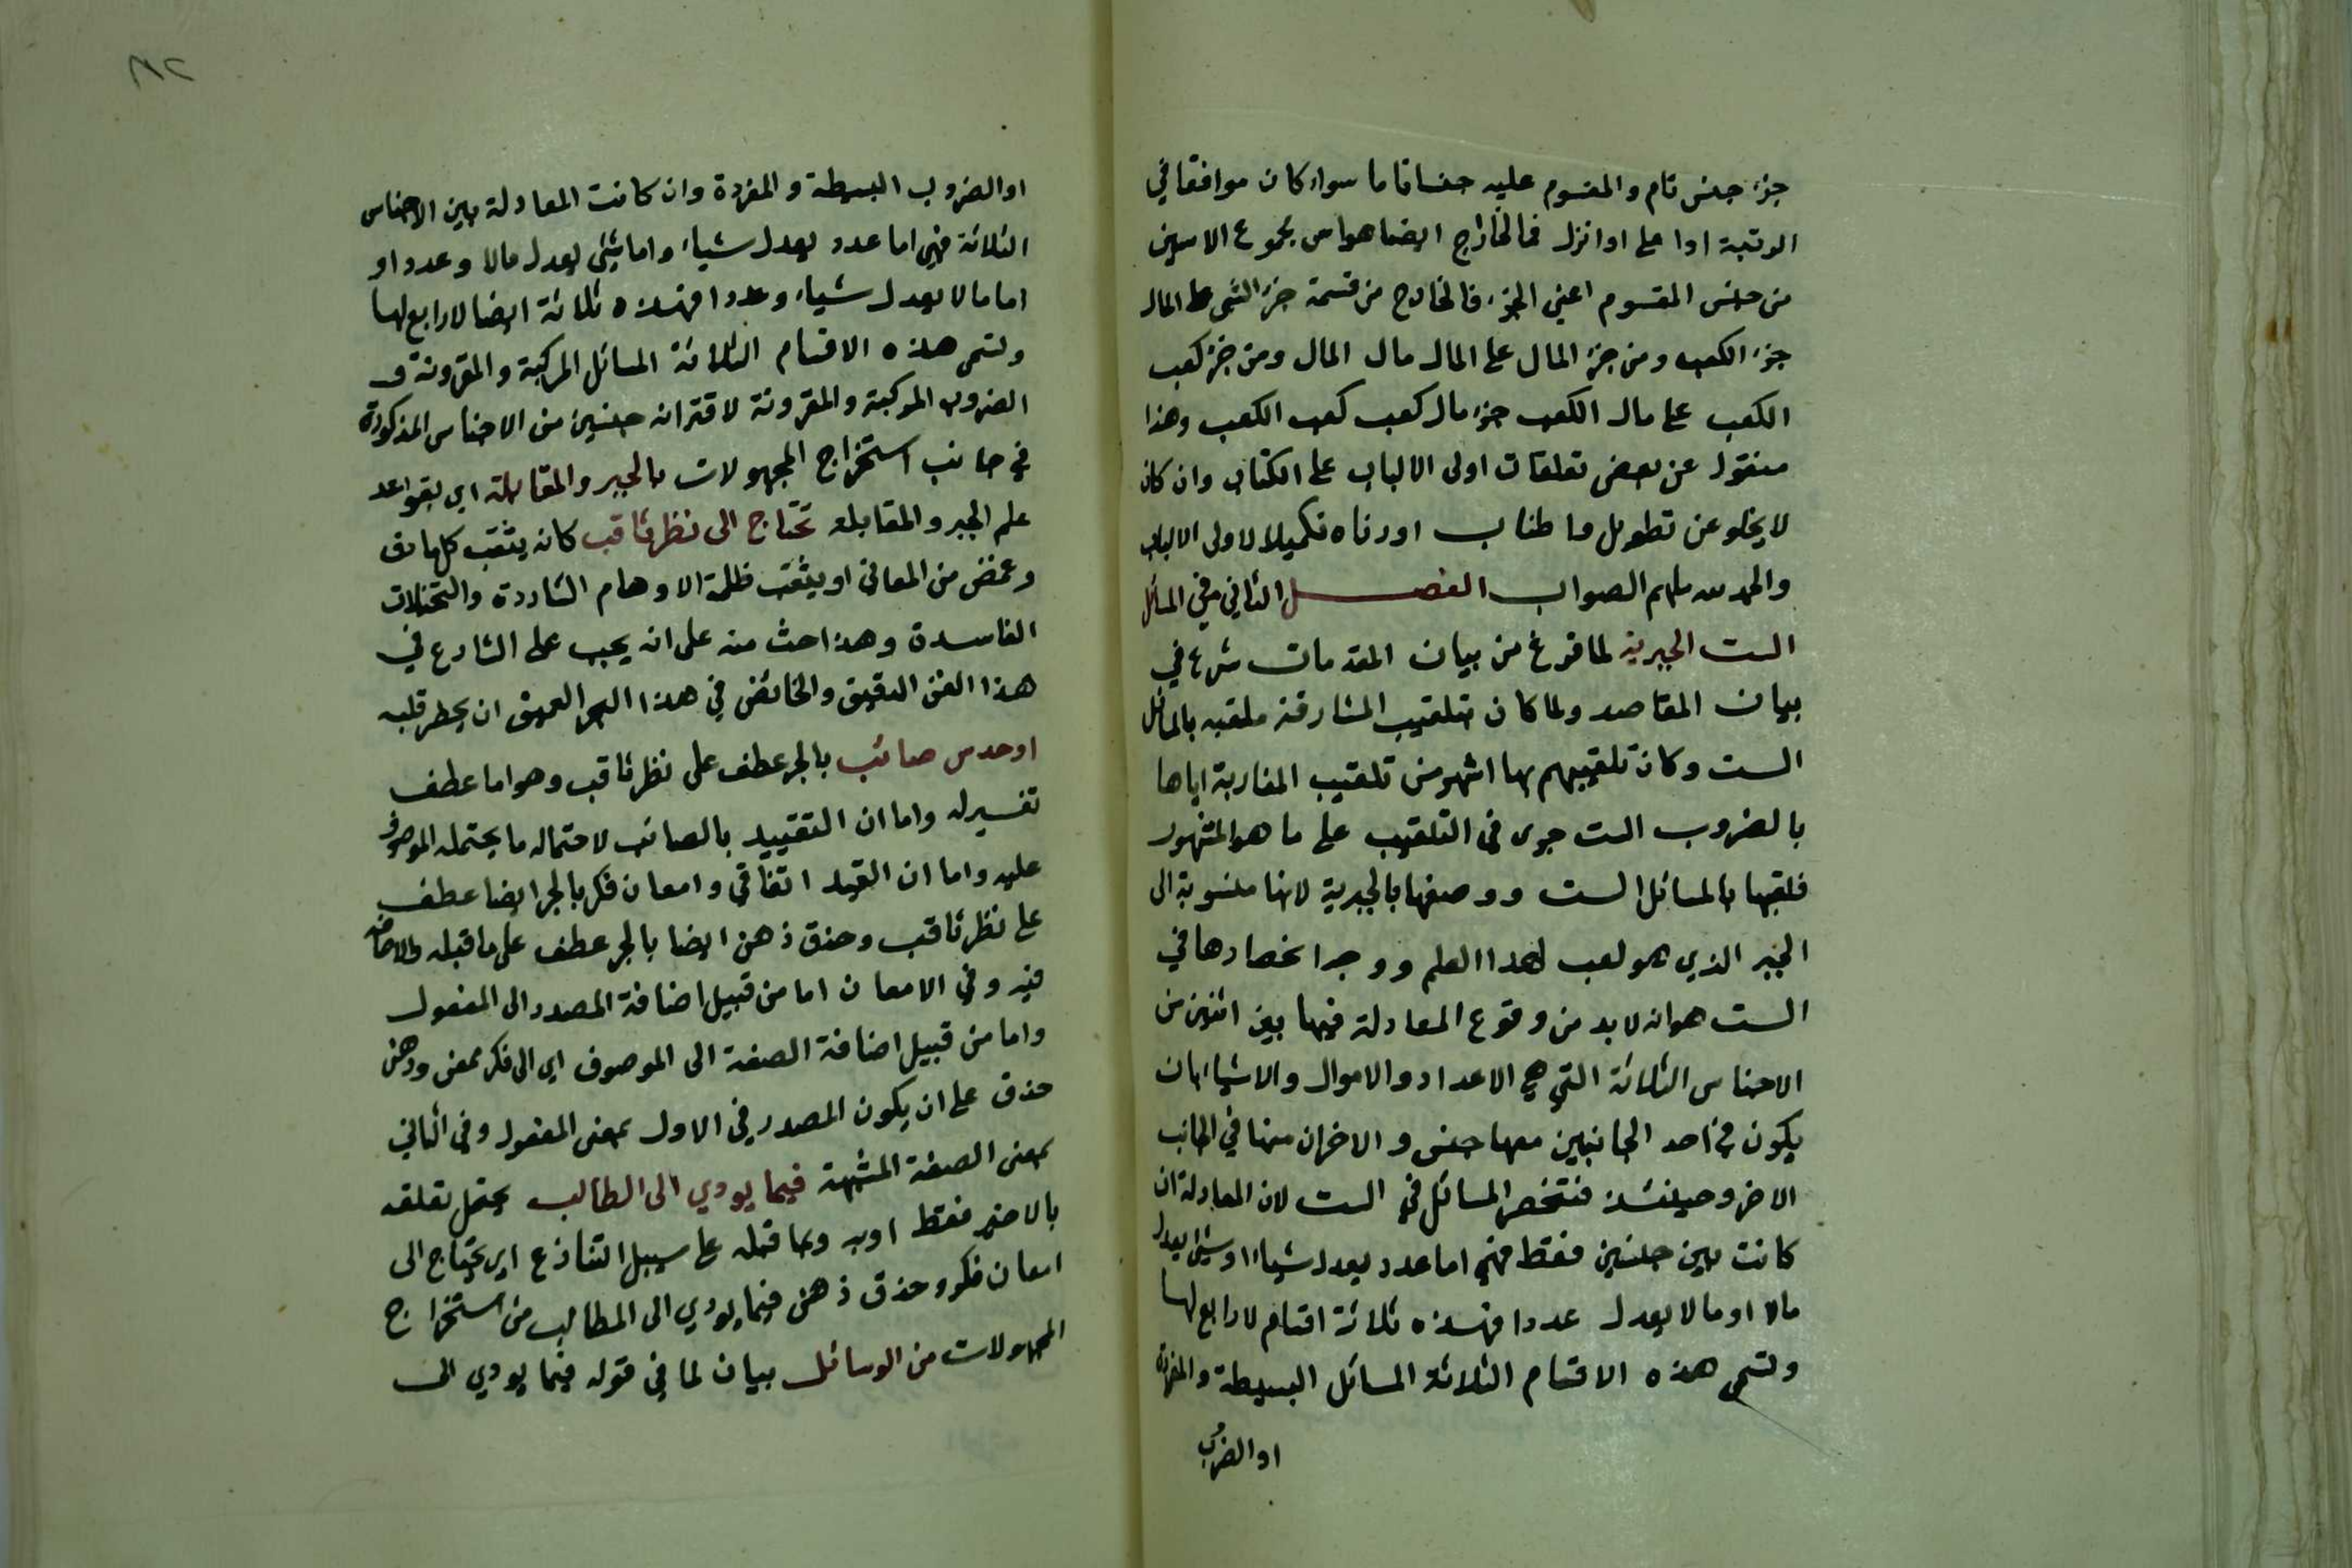 جزء جنس تام والمقسوم عليه جنسا تاما سواء كان موافقا في
الرتبة او اعلى او انزل فالخارج ايضا هو اس مجموع الاسين
من جنس المقسوم اعني الجزء فالخارج من قسمة جزء الشئ على المال
جزء الكعب ومن جزء المال على المال مال المال ومن جزء كعب
الكعب على مال الكعب جزء مال كعب كعب الكعب وهذا
منقول عن بعض تعلقات اولى الالباب على الكتاب وان كان
لا يخلو عن تطويل واطناب اوردناه تكميلا لاولى الالباب
والحمد لله ملهم الصواب الفصل الثاني في المسائل
الست الجبرية لما فرغ من بيان المقدمات شرع في
بيان المقاصد ولما كان بتلقيب المشارقة ملقبه بالمسائل
الست وكان تلقيبهم بها اشهر من تلقيب المغاربة اياها
بالضروب الست جرى في التلقيب على ما هو المشهور
فلقبها بالمسائل الست ووصفها بالجبرية لانها منسوبة الى
الجبر الذي هو لقب لهذا العلم ووجه انحصارها في
الست هو انه لا بد من وقوع المعادلة فيها بين اثنين من
الاجناس الثلاثة التي هي الاعداد والاموال والاشياء بان
يكون في احد الجانبين منها جنس والاخران منها في الجانب
الاخر وحينئذ فتنحصر المسائل في الست لان المعادلة ان
كانت بين جنسين فقط فهي اما عدد يعدل شياء او شئ يعدل
مالا او مالا يعدل عددا فهذه ثلاثة اقسام لا رابع لها
وتسمى هذه الاقسام الثلاثة المسائل البسيطة والمفردة
او الضروب
٨٢
او الضروب البسيطة والمفردة وان كانت المعادلة بين الاجناس
الثلاثة فهي اما عدد يعدل شياء واما شئ يعدل مالا وعددا او
اما مالا يعدل شياء وعددا فهذه ثلاثة ايضا لا رابع لها
وتسمى هذه الاقسام الثلاثة المسائل المركبة والمقرونة و
الضروب المركبة والمقرونة لاقتران جنسين من الاجناس المذكورة
في جانب استخراج المجهولات بالجبر والمقابلة اي بقواعد
علم الجبر والمقابلة تحتاج الى نظر ثاقب كانه يثقب كلما دق
وغمض من المعاني او يثقب ظلمة الاوهام الشاردة والتخيلات
الفاسدة وهذا حث منه على انه يجب على الشارع في
هذا الفن الدقيق والخائض في هذا البحر العميق ان يحظر قلبه
او حدس صائب بالجر عطف على نظر ثاقب وهو اما عطف
تفسير له واما ان التقييد بالصائب لاحتماله ما يحتمله الموصوف
عليه واما ان القيد اتفاقي وامعان فكر بالجر ايضا عطف
على نظر ثاقب وحذق ذهن ايضا بالجر عطف على ما قبله والاضافة
فيه وفي الامعان اما من قبيل اضافة المصدر الى المفعول
واما من قبيل اضافة الصفة الى الموصوف اي الى فكر ممعن وذهن
حذق على ان يكون المصدر في الاول بمعنى المفعول وفي الثاني
بمعنى الصفة المشبهة فيما يودي الى الطالب يحتمل تعلقه
بالاخير فقط او به وبما قبله على سبيل التنازع اي يحتاج الى
امعان فكر وحذق ذهن فيما يودي الى المطالب من استخراج
المجهولات من الوسائل بيان لما في قوله فيما يودي الى